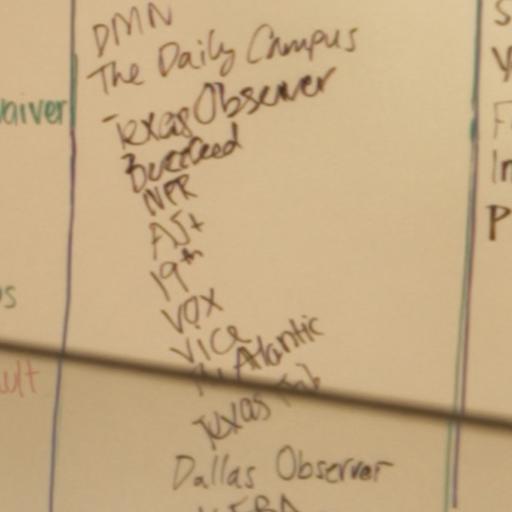 DMN
The Daily Campus
Texas Observer
Buzzfeed
NPR
AJ+
19th
VOX
VICE
Atlantic
Texas
Dallas Observer
aiver
In
P